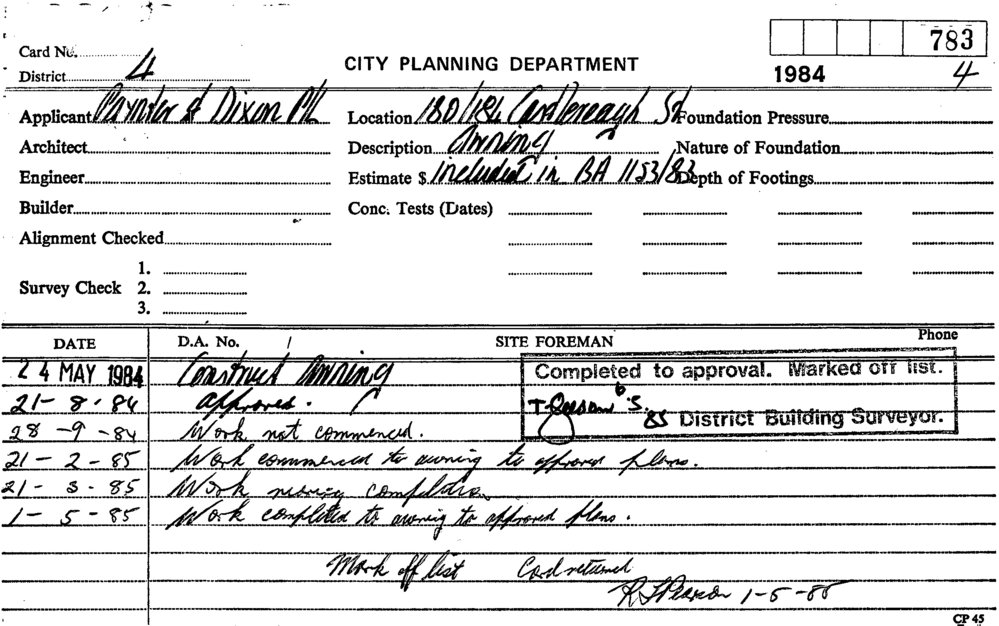 783
Card No.
District 4
CITY PLANNING DEPARTMENT
1984 4
Applicant Paynter & Dixon P/L Location 180/184 Castlereagh St Foundation Pressure
Architect Description Awning Nature of Foundation
Engineer Estimate $ included in BA 1153/83 Depth of Footings
Builder Conc. Tests (Dates)
Alignment Checked
1.
Survey Check 2.
3.
DATE D.A. No. / SITE FOREMAN Phone
24 MAY 1984 Construct Awning Completed to approval. Marked off list.
21-8-84 approved.
District Building Surveyor.
28-9-84 Work not commenced.
21-2-85 Work commenced to awning to approved plans.
21-3-85 Work nearing completion
1-5-85 Work completed to awning to approved plans.
Mark off list Card returned
1-5-85
CP 45